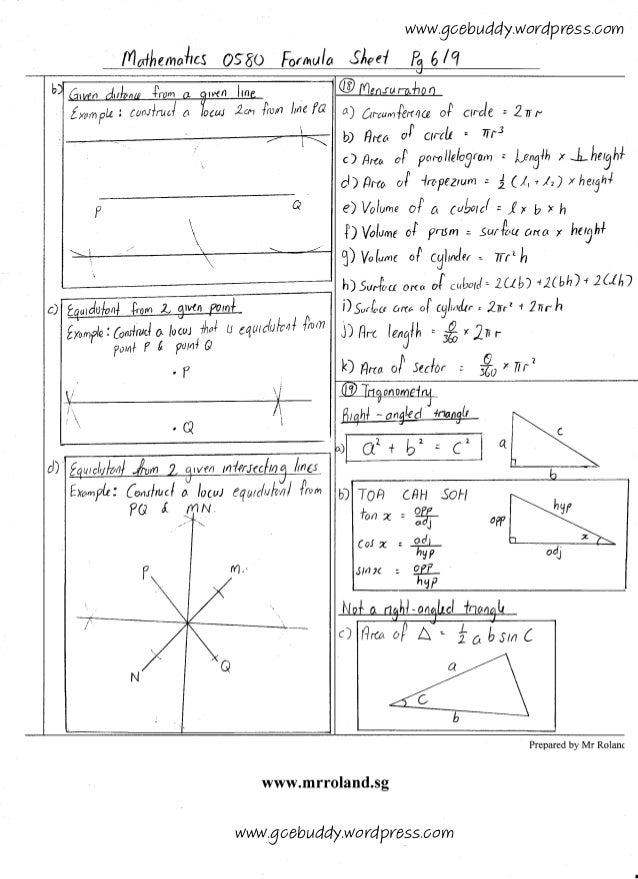 www.gcebuddy.wordpress.com
Mathematics 0580 Formula Sheet Pg 6/9
b) Given distance from a given line
Example: construct a locus 2cm from line PQ
P
Q
c) Equidistant from 2 given point
Example: Construct a locus that is equidistant from
point P & point Q
P
Q
d) Equidistant from 2 given intersecting lines
Example: Construct a locus equidistant from
PQ & MN.
P
M
N
Q
(18) Mensuration
a) Circumference of circle = 2πr
b) Area of circle = πr³
c) Area of parallelogram = Length × height
d) Area of trapezium = ½ (l₁ + l₂) × height
e) Volume of a cuboid = l × b × h
f) Volume of prism = surface area × height
g) Volume of cylinder = πr²h
h) Surface area of cuboid = 2(lb) + 2(bh) + 2(lh)
i) Surface area of cylinder = 2πr² + 2πrh
j) Arc length = θ/360 × 2πr
k) Area of sector = θ/360 × πr²
(19) Trigonometry
Right-angled triangle
a) a² + b² = c²
a
c
b
b) TOA CAH SOH
tan x = opp/adj
cos x = adj/hyp
sin x = opp/hyp
hyp
opp
x
adj
Not a right-angled triangle
c) Area of Δ = ½ a b sin C
a
C
b
Prepared by Mr Roland
www.mrroland.sg
www.gcebuddy.wordpress.com